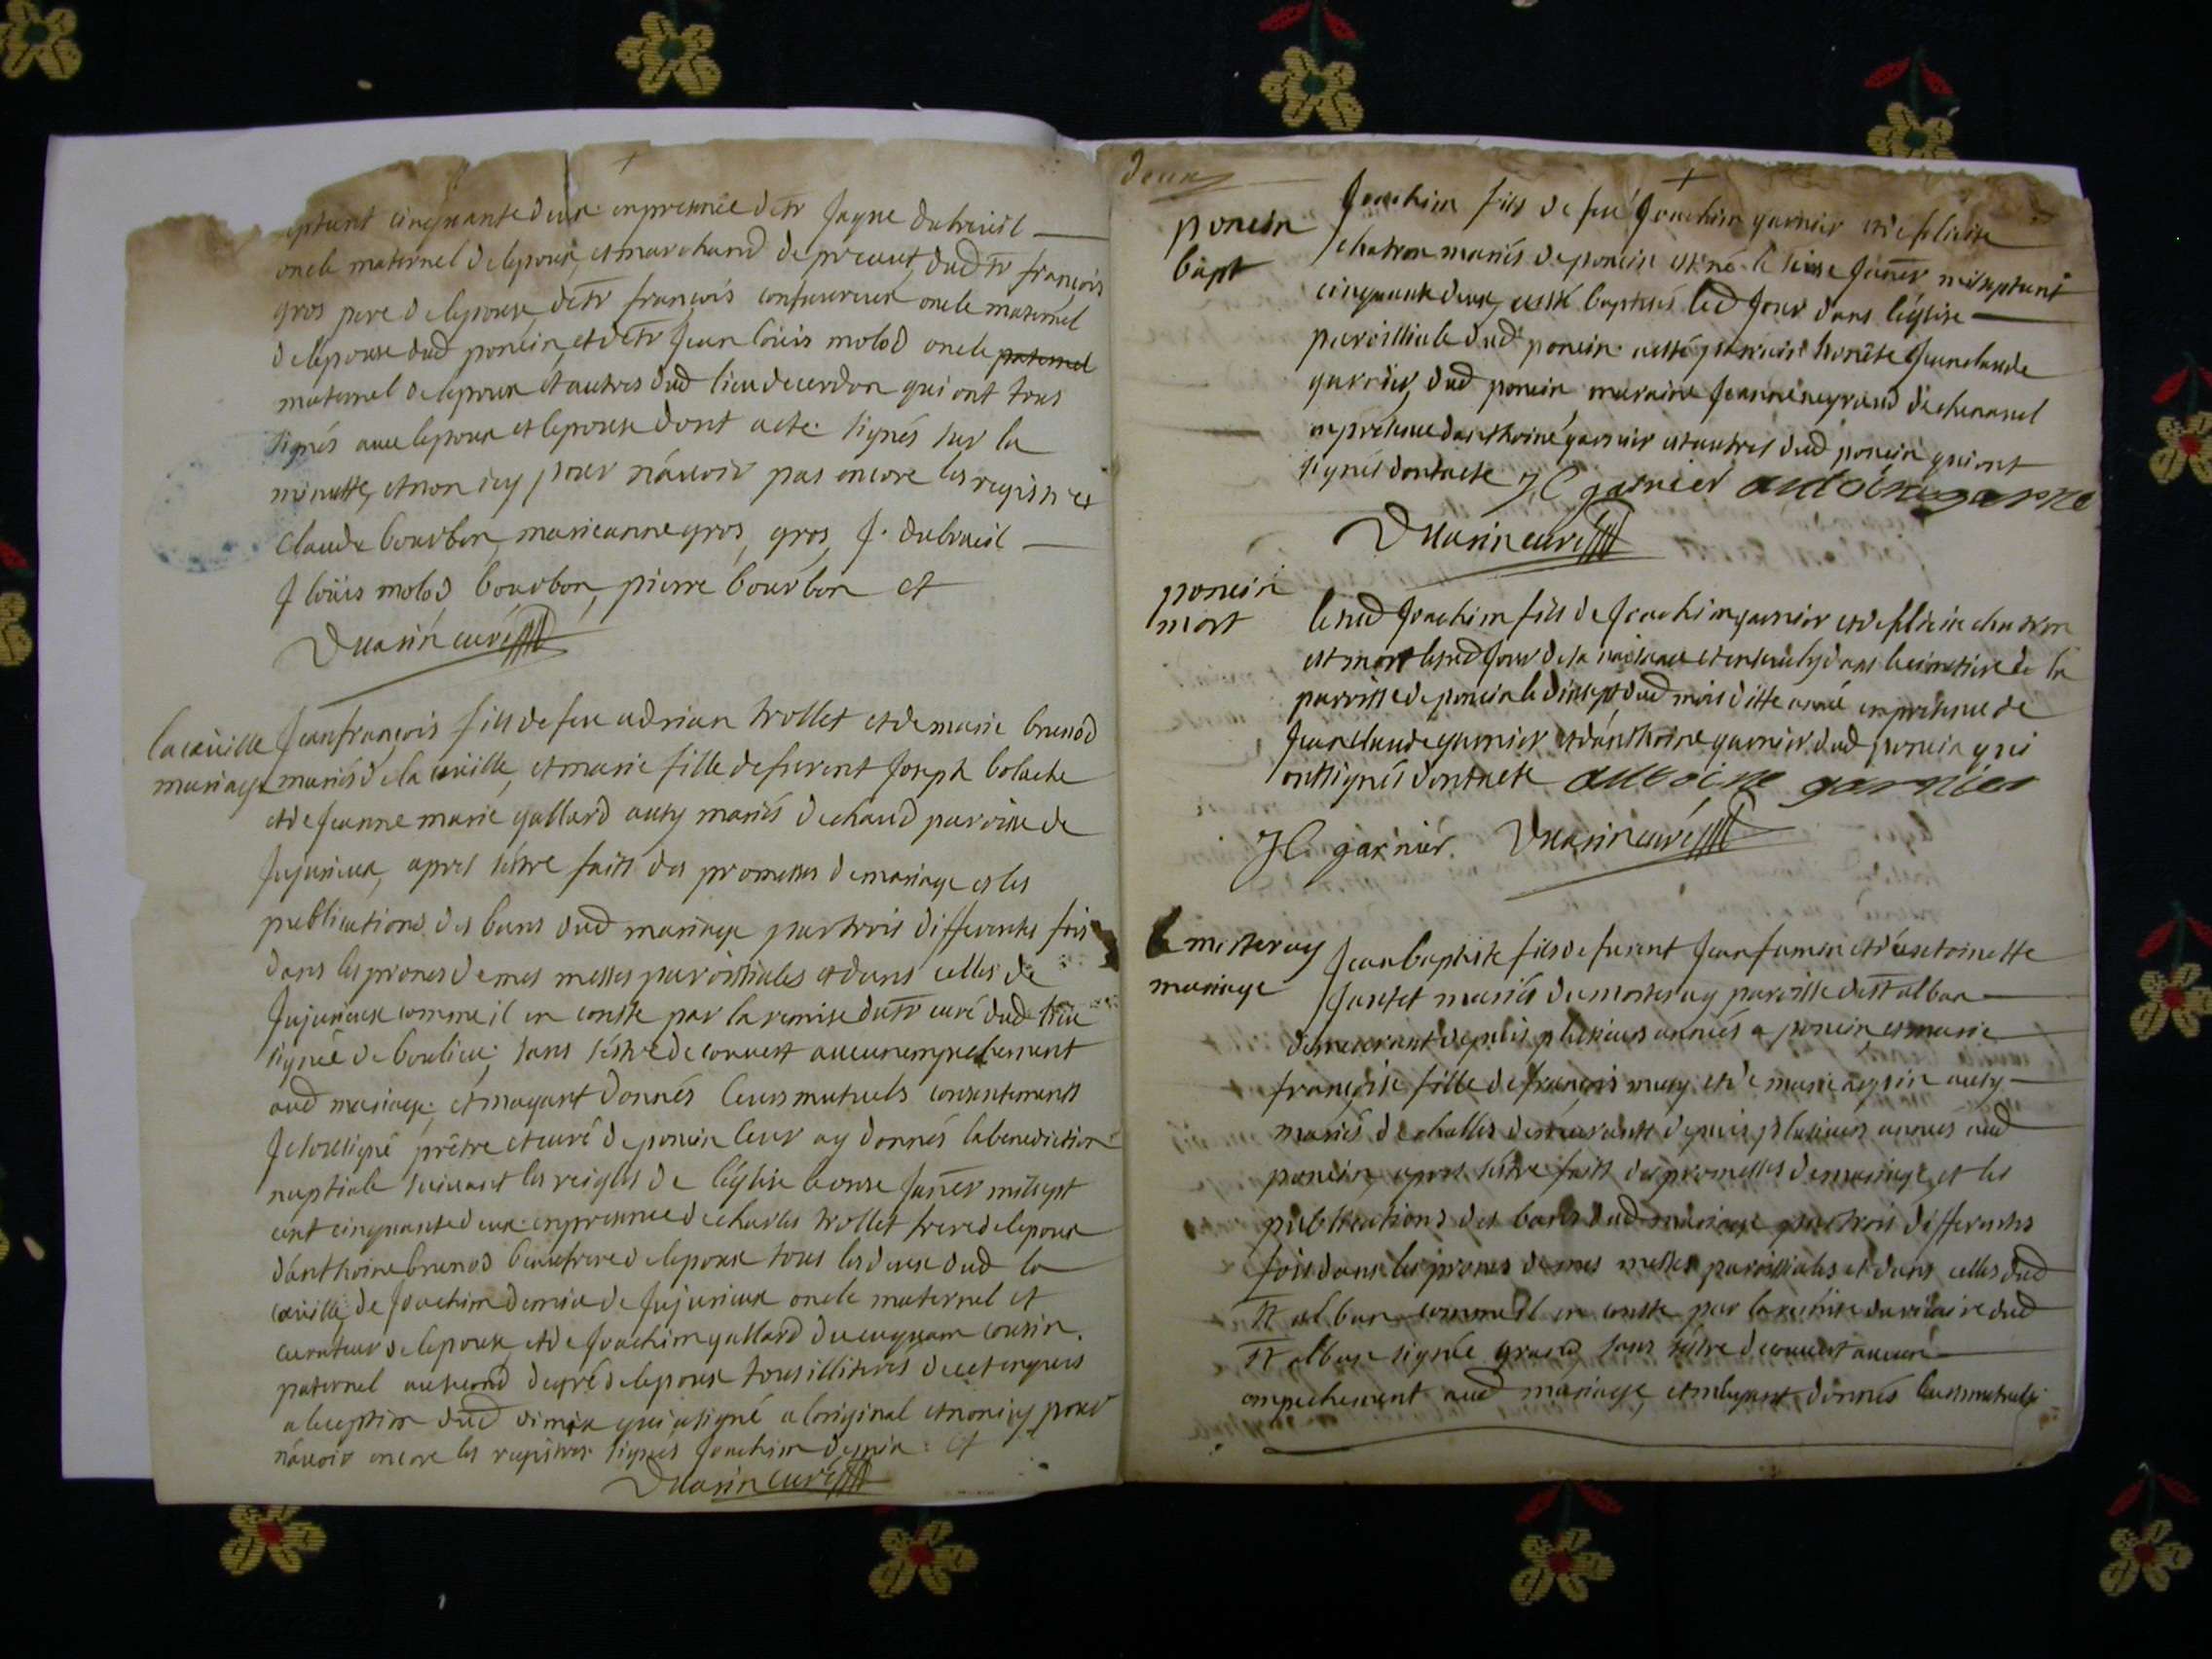 eptent cinquante deux en presence de sr Jayme dubreüil
oncle maternel de lepoux, et marchand de profession, dud sr françois
gros pere de lepouse, de sr françois convinenceux oncle maternel
de lepouse dud poncin, et de sr Jean loüis molod oncle paternel
maternel de lepoux et autres dud lieu de cerdon qui ont tous
signés avec lepoux et lepouse dont acte signés sur la
minutte, et non icy pour nâuoir pas encore les registres
claude bourbon, marieanne gros, gros, J. dubreuil
J loüis molod, bourbon, pierre bourbon et
Duarin curé
la cüeille
mariage
Jean françois fils de feu adrian trollet et de marie brunod
mariés de la cüeille, et marie fille de furent Joseph bolache
et de Jeanne marie gallard aussy mariés de chaud paroisse de
Jujurieux, apres sêstre faits des promesses de mariage et les
publications des bans dud mariage par trois differentes fois
dans les prones de mes messes paroissiales et dans celles de
Jujurieux comme il en conste par la remise du sr curé dud lieu
signée de boulieu; sans sêstre decouuert aucun empechement
aud mariage, et mayant donnés leurs mutuels consentements
Je soussigné prêtre et curé de poncin leur ay donnés la benediction
nuptiale suiuant les reigles de lêglise le onze Janer mil sept
cent cinquante deux en presence de charles trollet frere de lepoux
danthoine brunod beaufrere de lepoux tous les deux dud la
cüeille, de Joachim demia de Jujurieux oncle maternel et
curateur de lepouse, et de Joachim gallard du cugnam cousin
paternel au second degré de lepouse tous illiteres de ce enquis
a lexception dud dimia qui a signé a loriginal et non icy pour
nâuoir encore les registres signés Joachim demia et
Duarin curé
deux
poncin
bapt
Joachim fils de feu Joachim garnier et de felicite
chatron mariés de poncin est né le seize Janer mil sept cent
cinquante deux, a esté baptisés led Jour dans lêglise
paroissiale dud poncin a esté parrain honête Jean claude
garnier, dud poncin maraine Jeanne negrand de chenauel
en presence danthoine garnier et autres dud poncin qui ont
signés dont acte JC garnier antoine garnie
Duarin curé
poncin
mort
le sud Joachim fils de Joachim garnier et de felicite chatron
est mort le sud Jour de sa naissance et enseuely dans le cimetiere de la
paroisse de poncin le dix sept dud mois ditte année en presence de
Jean claude garnier et danthoine garnier dud poncin qui
ont signés dont acte antoine garnier
JC garnier. Duarin curé
le mesteray
mariage
Jean baptiste fils de furent Jean fumin et dantoinette
Jantet mariés du mortaray paroisse de st alban
demeurant depuis plusieurs années a poncin, et marie
françoise fille de françois mury et de marie aysin aussy
mariés de challes demeurants depuis plusieurs années aud
poncin, apres sêstre faits des promesses de mariage, et les
publications des bans dud mariage par trois differentes
fois dans les prones de mes messes paroissiales et dans celles dud
st alban comme il en conste par la remise du vicaire dud
st alban signée grand sans sêstre decouuert aucun
empechement aud mariage, et mayant donnés leurs mutuels